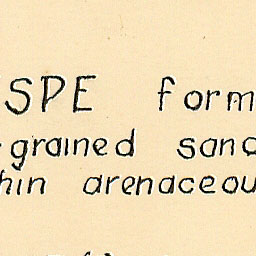 SPE form
grained sand
hin arenaceou